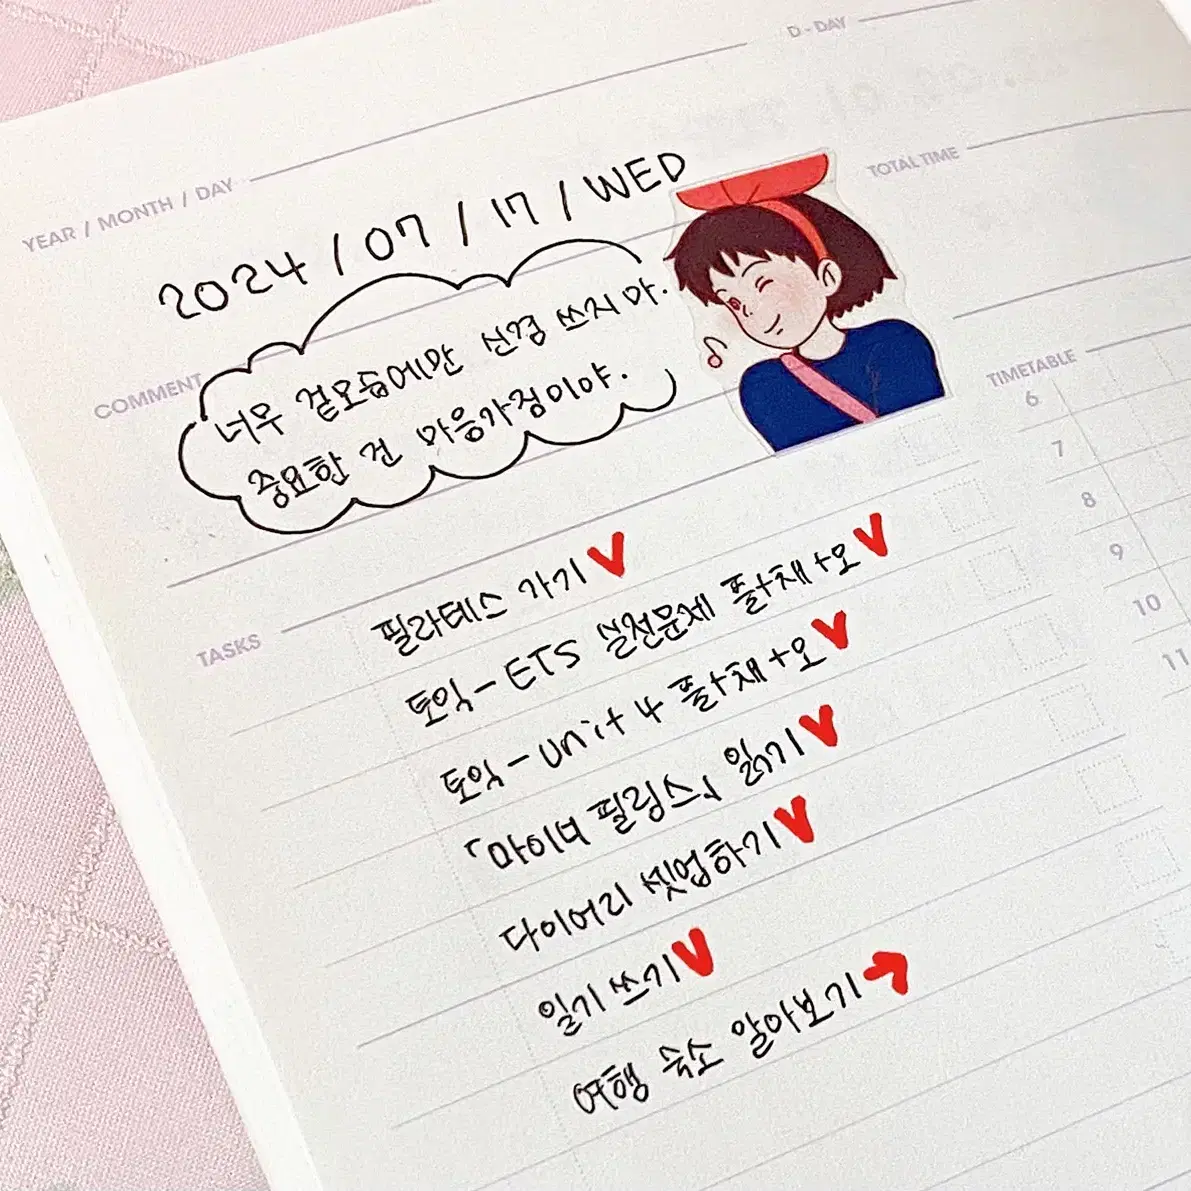 D-DAY
YEAR / MONTH / DAY
2024 / 07 / 17 / WED
TOTAL TIME
COMMENT
너무 겉모습에만 신경 쓰지 마.
중요한 건 마음가짐이야.
TIMETABLE
6
7
8
9
10
11
TASKS
필라테스 가기 V
토익 - ETS 실전문제 풀+채+오 V
토익 - unit 4 풀+채+오 V
「마이너 필링스」 읽기 V
다이어리 셋업하기 V
일기 쓰기 V
여행 숙소 알아보기 →